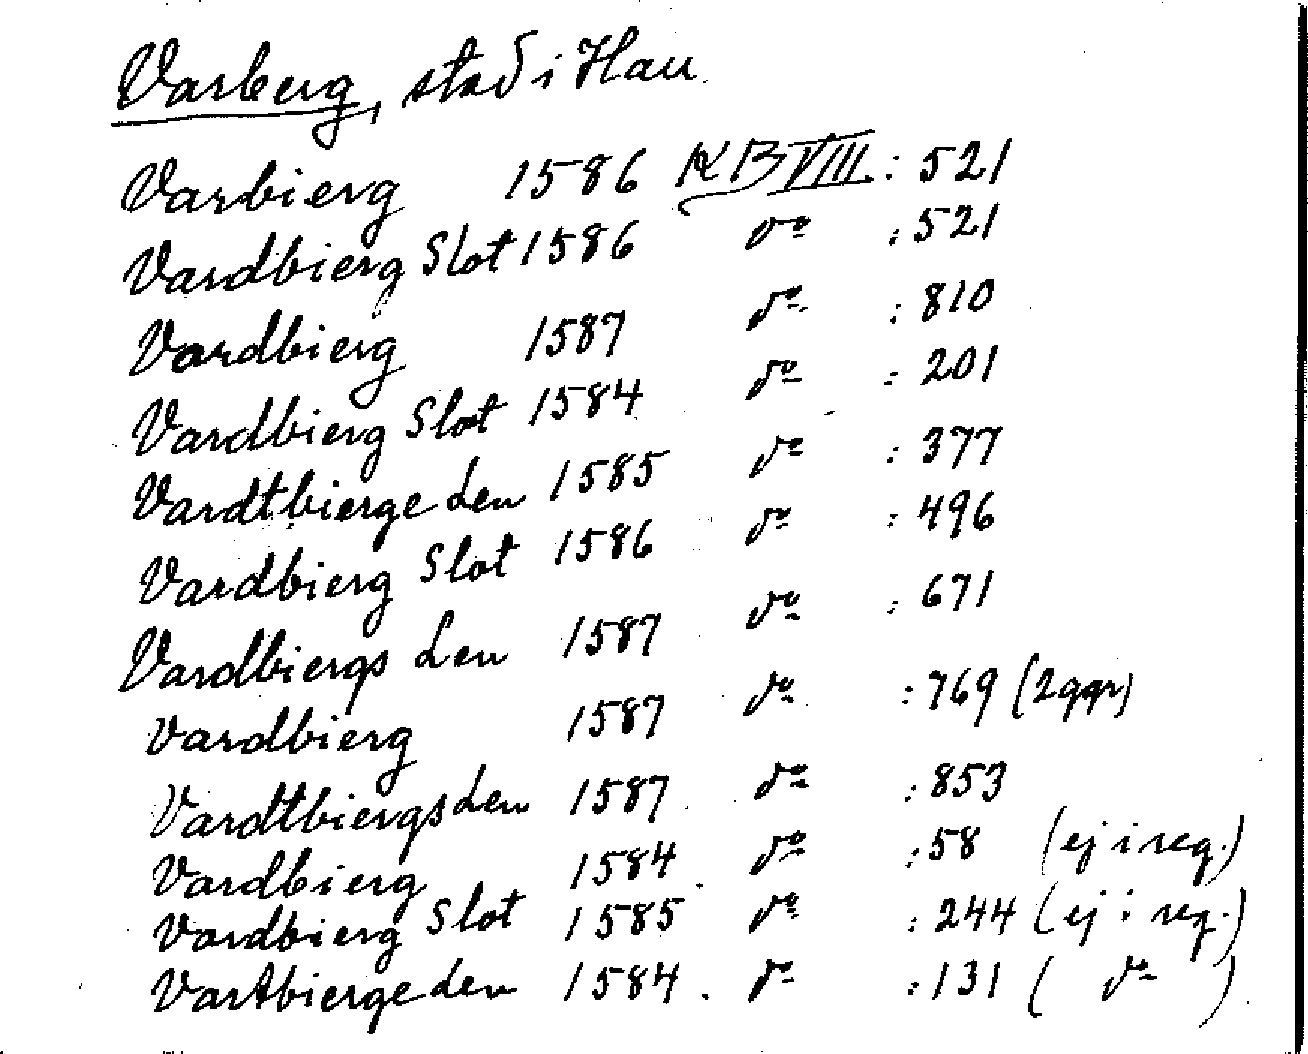 Varberg, stad i Hall.
Varbierg 1586 KB VIII : 521
Vardbierg Slot 1586 do : 521
Vardbierg 1587 do : 810
Vardbierg Slot 1584 do : 201
Vardtbierge Len 1585 do : 377
Vardbierg Slot 1586 do : 496
Vardbiergs Len 1587 do : 671
Vardbierg 1587 do : 769 (2 ggr)
Vardtbiergs Len 1587 do : 853
Vardbierg 1584 do : 58 (ej i reg.)
Vardbierg Slot 1585 do : 244 (ej i reg.)
Vartbierge len 1584 do : 131 ( do )